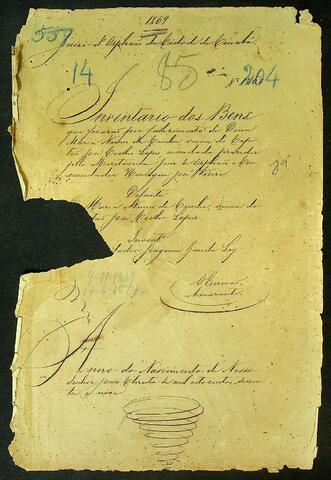 1869
557
Juizo d'Orphãos da Cidade de Cuiabá
14 85 204
Nº
Inventario dos Bens
que ficarão por fallecimento de Dona
Maria Nunes da Cunha, viuva do Capi
tão José Coelho Lopes mandado proceder
pelo Juiz de Orphãos o Com
mendador Henrique José Vieira
Defunta
Maria Nunes da Cunha, viuva do
tão José Coelho Lopes
Invent
tador Joaquim Gaudie Ley
O Escrivão
Amarante
Anno do Nascimento de Nosso
Senhor Jesus Christo de mil oito centos sessen
ta e nove